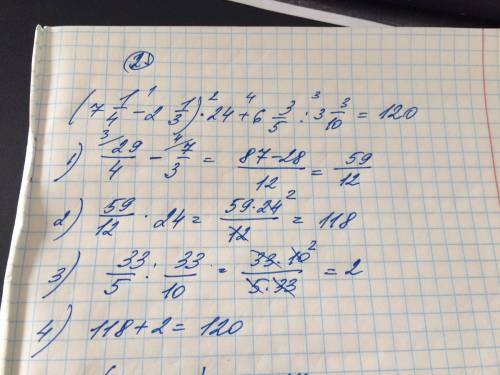 2)
(7 1/4 - 2 1/3) · 24 + 6 3/5 : 3 3/10 = 120
1) 29/4 - 7/3 = 87-28/12 = 59/12
2) 59/12 · 24 = 59·24/12 = 118
3) 33/5 : 33/10 = 33·10/5·33 = 2
4) 118 + 2 = 120